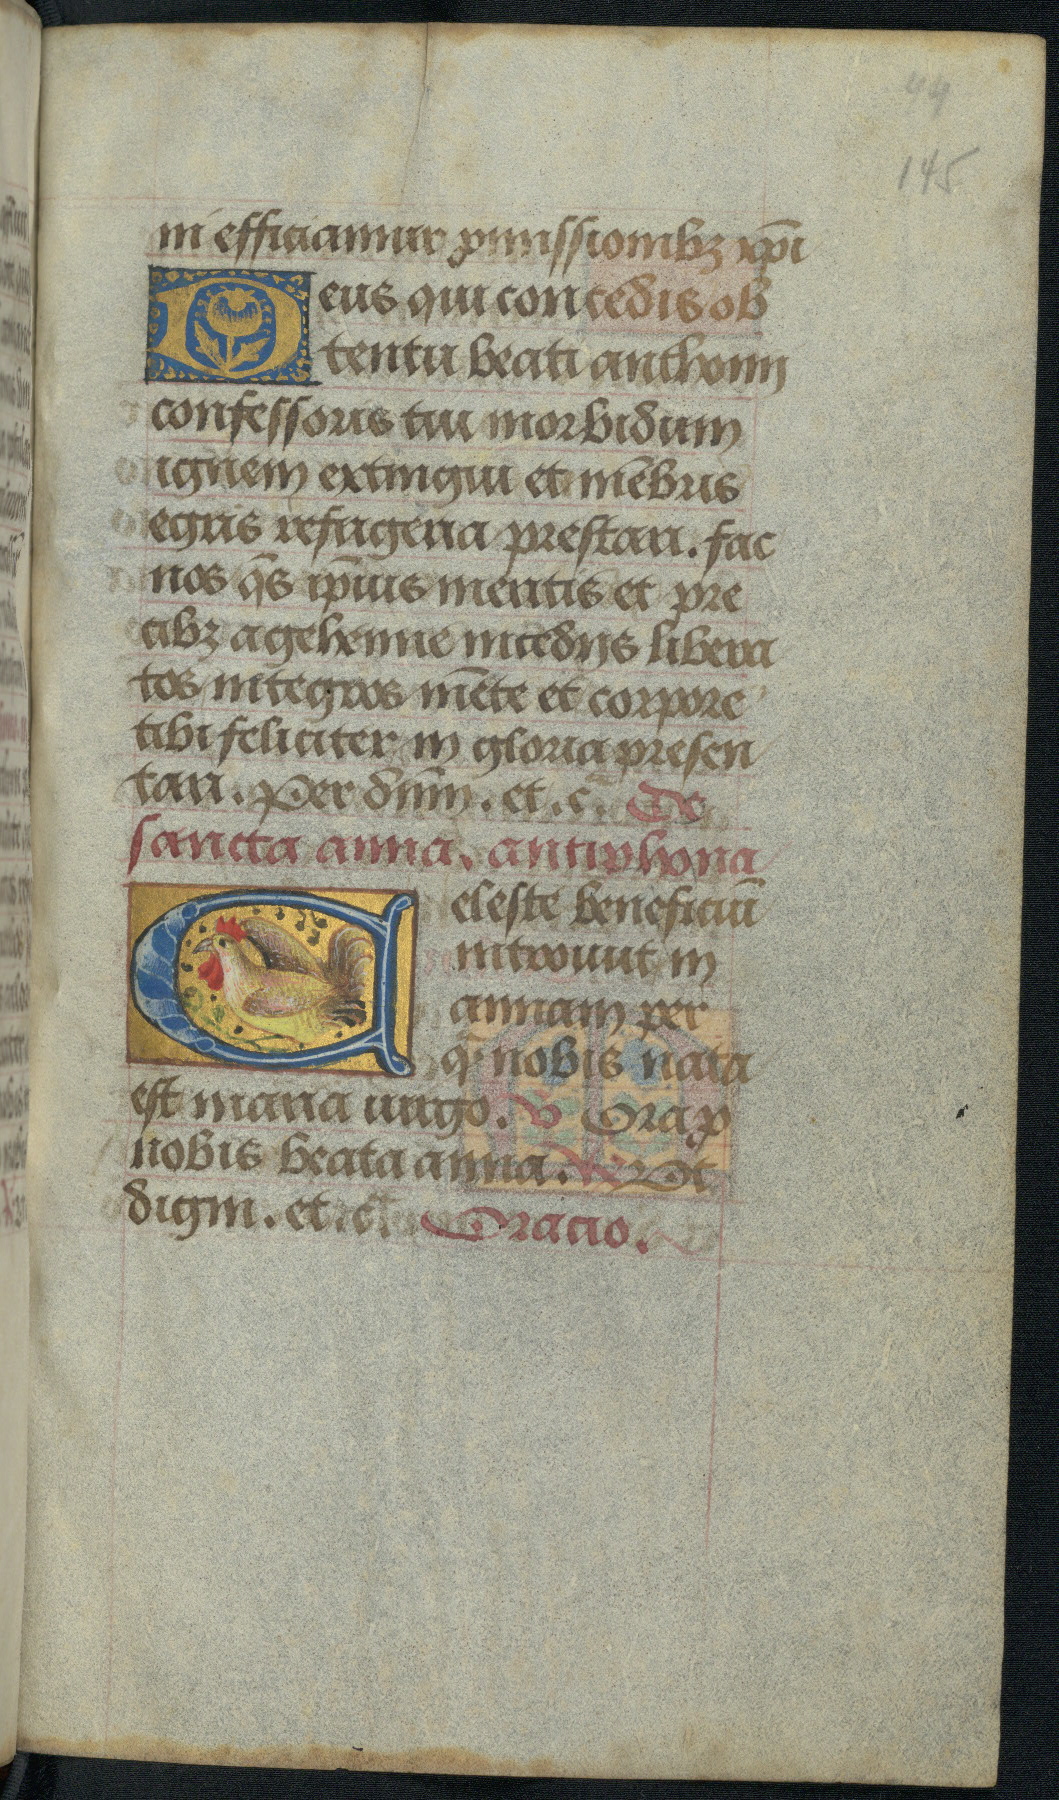 44
145
ni efficiamur ꝓmissionibꝫ xp̄i
Deus qui concedis ob
tentu beati anthonii
confessoris tui morbidum
ignem extingui et mēbris
egris refrigeria prestari. fac
nos q̄s ip̄ius meritis et pre
cibꝫ a gehenne incēdiis libera
tos integros mēte et corpore
tibi feliciter in gloria presen
tari. Per dn̄m. et. c̄. De
sancta anna. antiphona
Celeste beneficiū
introiuit in
annam per
qᷓ nobis nata
est maria uirgo. V Ora ꝓ
nobis beata anna. R Vt
digni. et. c̄. Oracio.